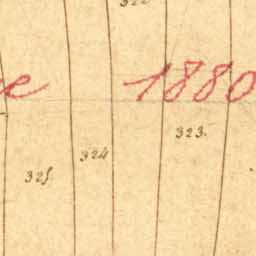 1880
323.
324
325.